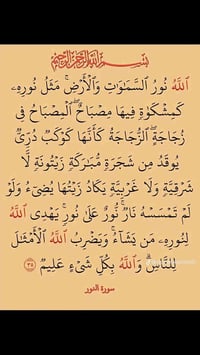 بِسْمِ اللَّهِ الرَّحْمَٰنِ الرَّحِيمِ
اللَّهُ نُورُ السَّمَاوَاتِ وَالْأَرْضِ ۚ مَثَلُ نُورِهِ
كَمِشْكَاةٍ فِيهَا مِصْبَاحٌ ۖ الْمِصْبَاحُ فِي
زُجَاجَةٍ ۖ الزُّجَاجَةُ كَأَنَّهَا كَوْكَبٌ دُرِّيٌّ
يُوقَدُ مِن شَجَرَةٍ مُّبَارَكَةٍ زَيْتُونَةٍ لَّا
شَرْقِيَّةٍ وَلَا غَرْبِيَّةٍ يَكَادُ زَيْتُهَا يُضِيءُ وَلَوْ
لَمْ تَمْسَسْهُ نَارٌ ۚ نُّورٌ عَلَىٰ نُورٍ ۗ يَهْدِي اللَّهُ
لِنُورِهِ مَن يَشَاءُ ۚ وَيَضْرِبُ اللَّهُ الْأَمْثَالَ
لِلنَّاسِ ۗ وَاللَّهُ بِكُلِّ شَيْءٍ عَلِيمٌ ٣٥
سورة النور